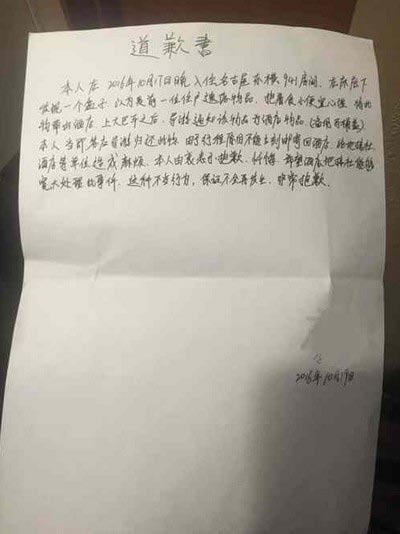 道歉書
本人在 2016年10月17日晚 入住名古屋 941房间 在床底下
发现一个盒子 以为是前一位住户遗留物品 抱着贪小便宜心理 将此
物带出酒店 上大巴并之后 导游通知该物品为酒店物品
本人当即答应导游归还 由于行程原因不能立刻邮寄回酒店 给地接社
酒店等单位造成麻烦 本人由衷表示抱歉 忏悔 希望酒店地接社能够
宽大处理此事件 这种不当行为 保证不会再发生 非常抱歉
2016年10月19日